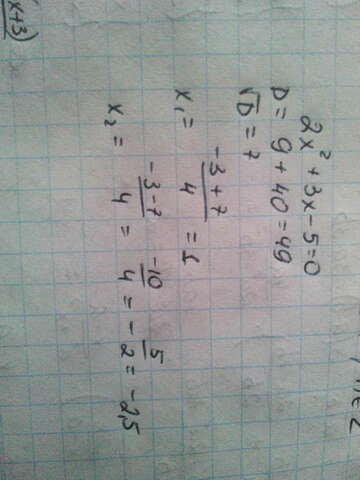 2x² + 3x - 5 = 0
D = 9 + 40 = 49
√D = 7
x₁ = (-3 + 7)/4 = 1
x₂ = (-3 - 7)/4 = -10/4 = -5/2 = -2,5
x+3)